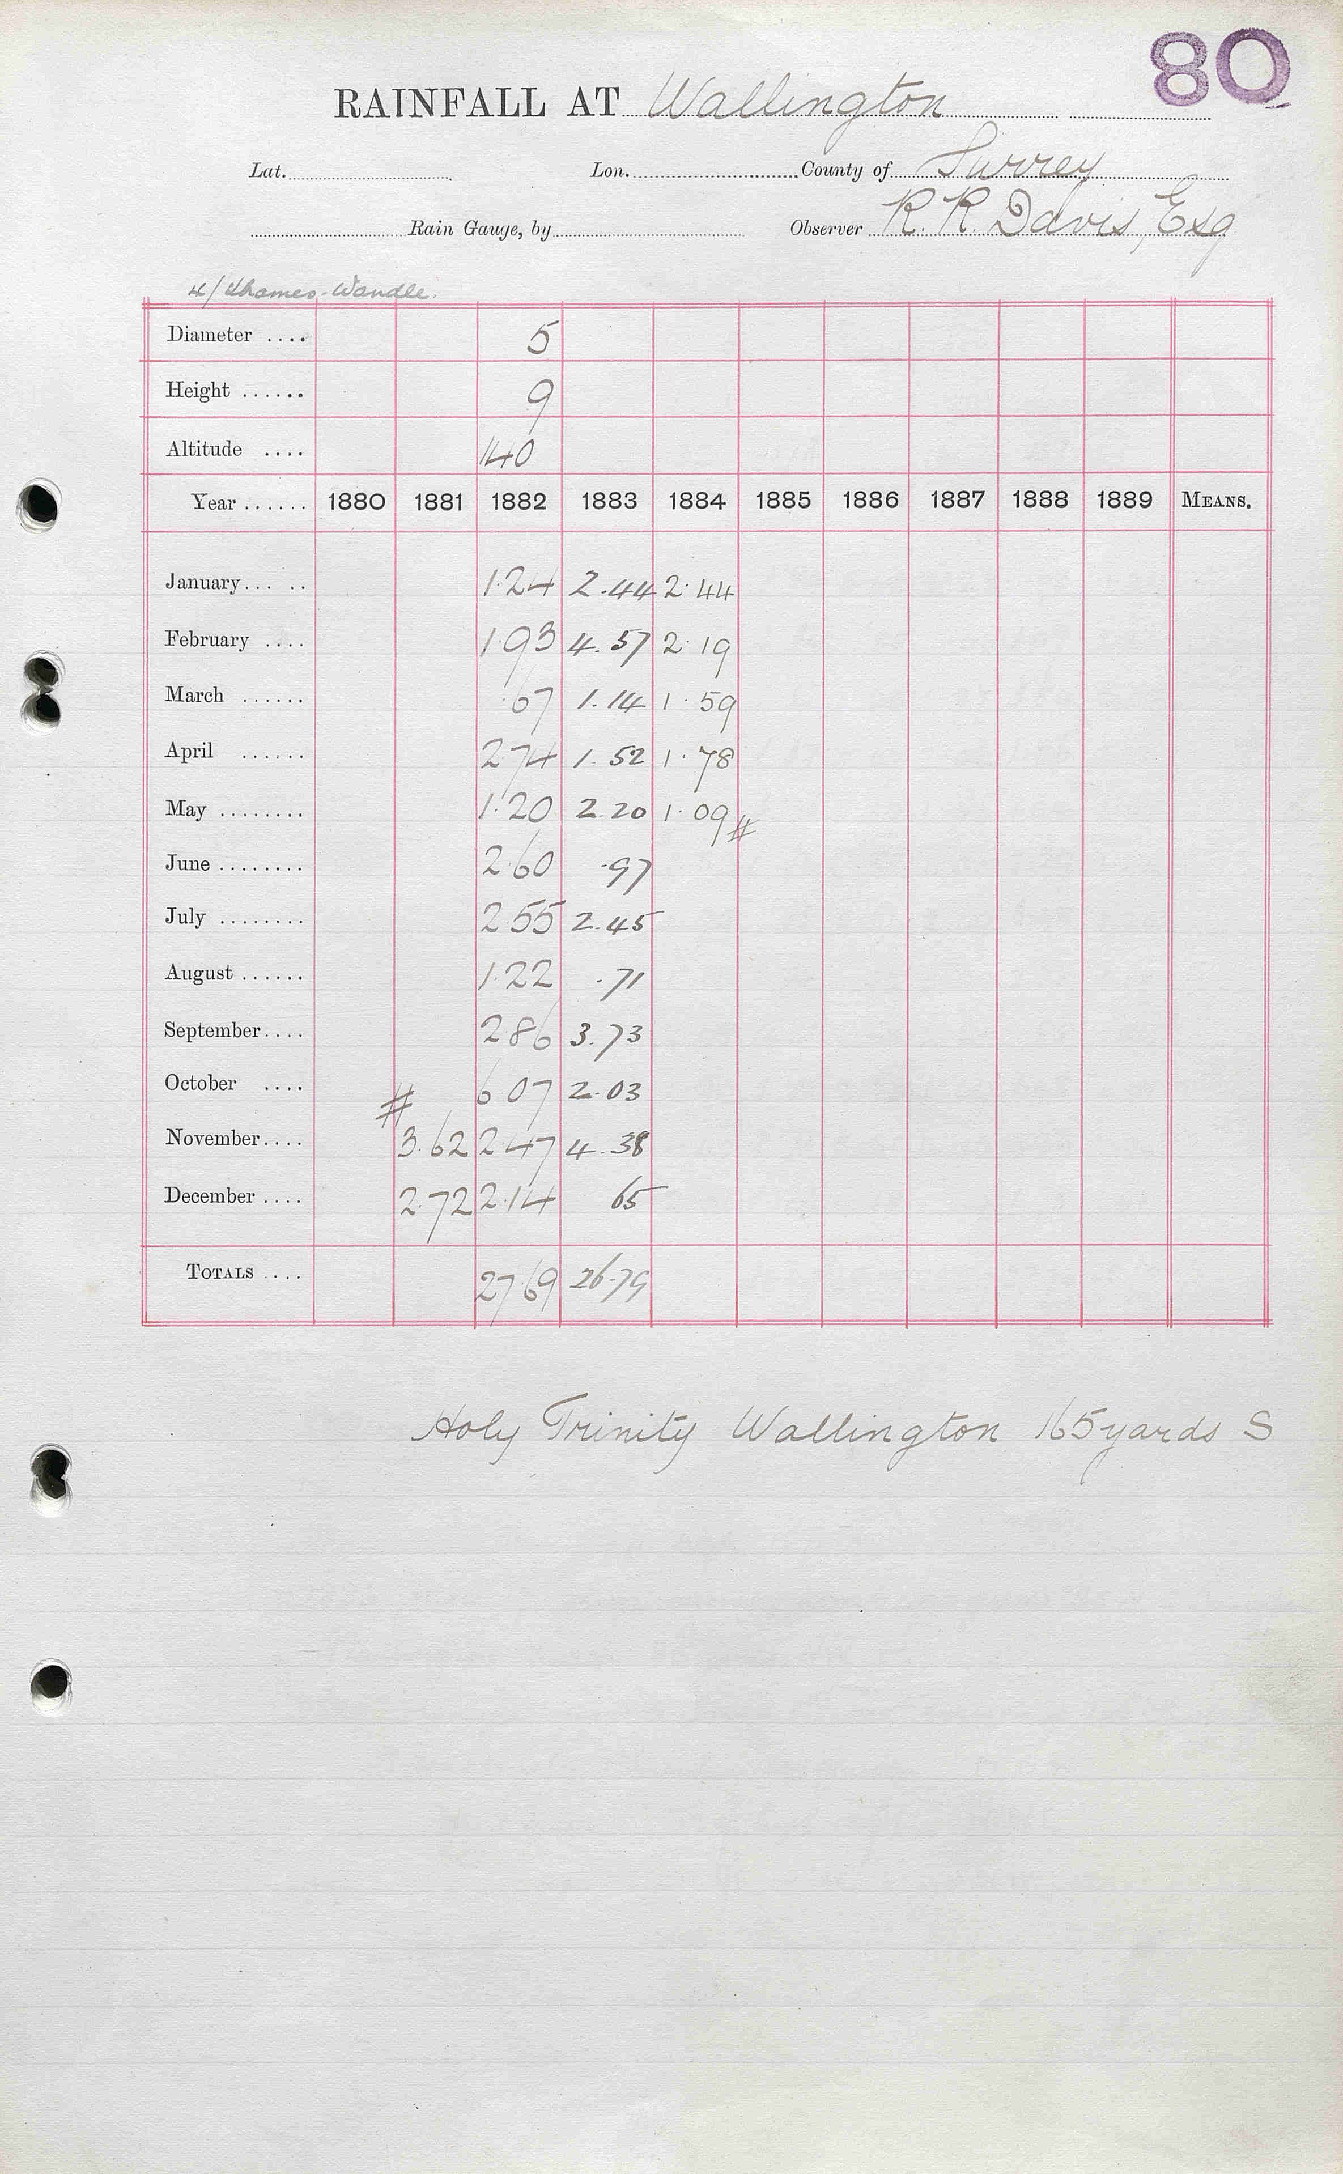 80
RAINFALL AT Wallington
Lat. Lon. County of Surrey
Rain Gauge, by Observer R. R. Davis, Esq
4/ Thames-Wandle.
Diameter .... 5
Height ...... 9
Altitude .... 140
Year ...... 1880 1881 1882 1883 1884 1885 1886 1887 1888 1889 MEANS.
January... .. 1.24 2.44 2.44
February .... 1.93 4.57 2.19
March ...... .67 1.14 1.59
April ...... 2 74 1.52 1.78
May ........ 1.20 2.20 1.09 #
June ........ 2.60 .97
July ........ 2 55 2.45
August ...... 1.22 .71
September.... 2 86 3.73
October .... # 6 07 2.03
November.... 3.62 2 47 4.38
December .... 2.72 2.14 65
TOTALS .... 27.69 26.79
Holy Trinity Wallington 165 yards S